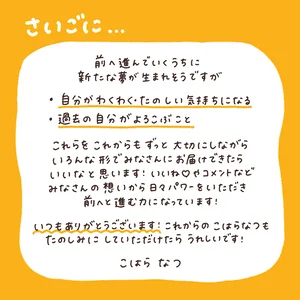 さいごに...
前へ進んでいくうちに
新たな夢が生まれそうですが
・自分がわくわく・たのしい気持ちになる
・過去の自分がよろこぶこと
これらを これからも ずっと 大切にしながら
いろんな形でみなさんに お届けできたら
いいなと 思います! いいね♡やコメントなど
みなさんの 想いから日々パワーをいただき
前へと進む力になっています!
いつもありがとうございます! これからの こはらなつも
たのしみに していただけたら うれしいです!
こはら なつ